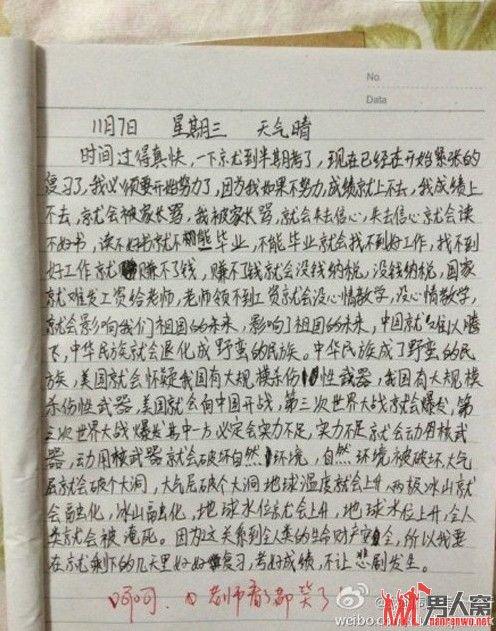 No.
Data
11月7日 星期三 天气晴
时间过得真快,一下就到半期考了,现在已经在开始紧张的
复习了,我必须要开始努力了,因为我如果不努力,成绩就上不去,我成绩上
不去,就会被家长骂,我被家长骂,就会失去信心,失去信心就会读
不好书,读不好书就不能毕业,不能毕业就会找不到好工作,找不到
好工作就赚不了钱,赚不了钱就会没钱纳税,没钱纳税,国家
就难发工资给老师,老师领不到工资就会没心情教学,没心情教学,
就会影响我们祖国的未来,影响了祖国的未来,中国就难以腾
飞,中华民族就会退化成野蛮的民族。中华民族成了野蛮的民
族,美国就会怀疑我国有大规模杀伤性武器,我国有大规模
杀伤性武器,美国就会向中国开战,第三次世界大战就会爆发,第
三次世界大战爆发其中一方必定会实力不足,实力不足就会动用核武
器,动用核武器就会破坏自然环境,自然环境被破坏,大气
层就会破个大洞,大气层破个大洞地球温度就会上升,两极冰山就
会融化,冰山融化,地球水位就会上升,地球水位上升,全人
类就会被淹死。因为这关系到全人类的生命财产安全,所以我要
在就剩下的几天里好好复习,考好成绩,不让悲剧发生。
呵呵,老师看了都笑了
weibo.com/
男人窝
nanrenwo.net